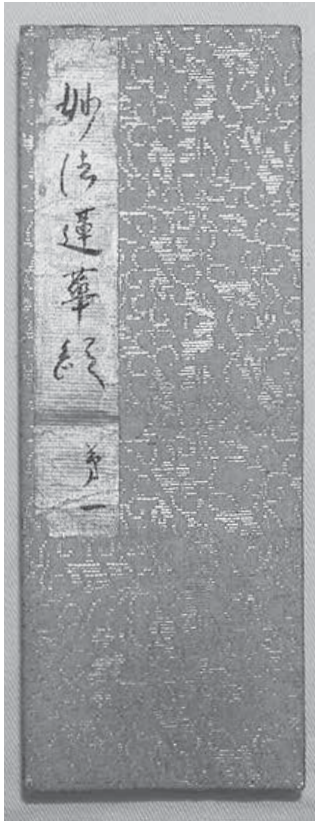 妙法蓮華経 第一